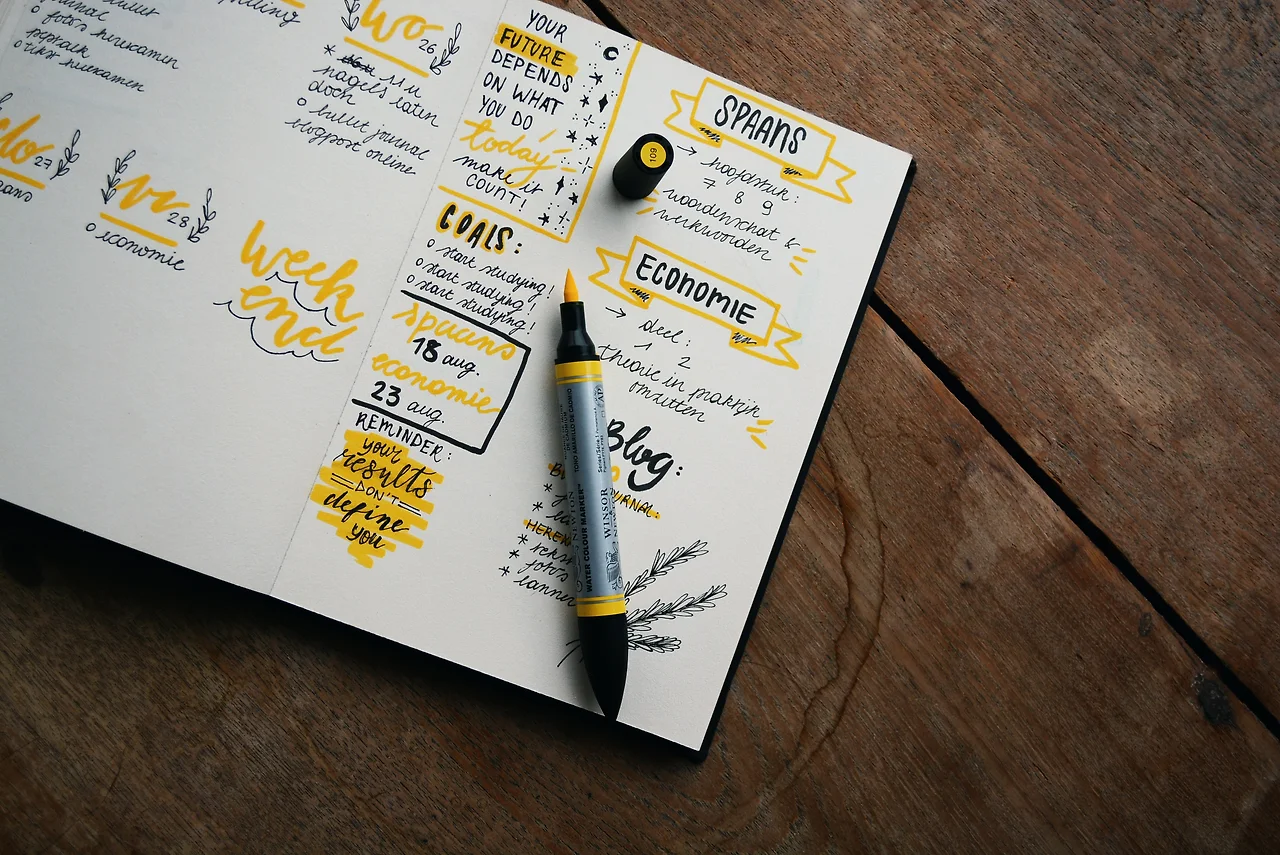 bullet
journal
o foto's herexamen
o tekst herexamen
wo 26
* 11 u
nagels laten
doen
o bullet journal
blogpost online
do 27
vr 28
o economie
week
end
YOUR
FUTURE
DEPENDS
ON WHAT
YOU DO
today
make it
COUNT!
GOALS:
o start studying!
o start studying!
o start studying!
spaans
18 aug.
economie
23 aug.
REMINDER:
your
results
DON'T
define
you
SPAANS
→ hoofdstuk:
7 8 9
woordenschat &
werkwoorden
ECONOMIE
→ deel:
1 2
theorie in praktijk
omzetten
Blog:
*
*
* foto's
109
WATER COLOUR MARKER™
WINSOR
NEWTON